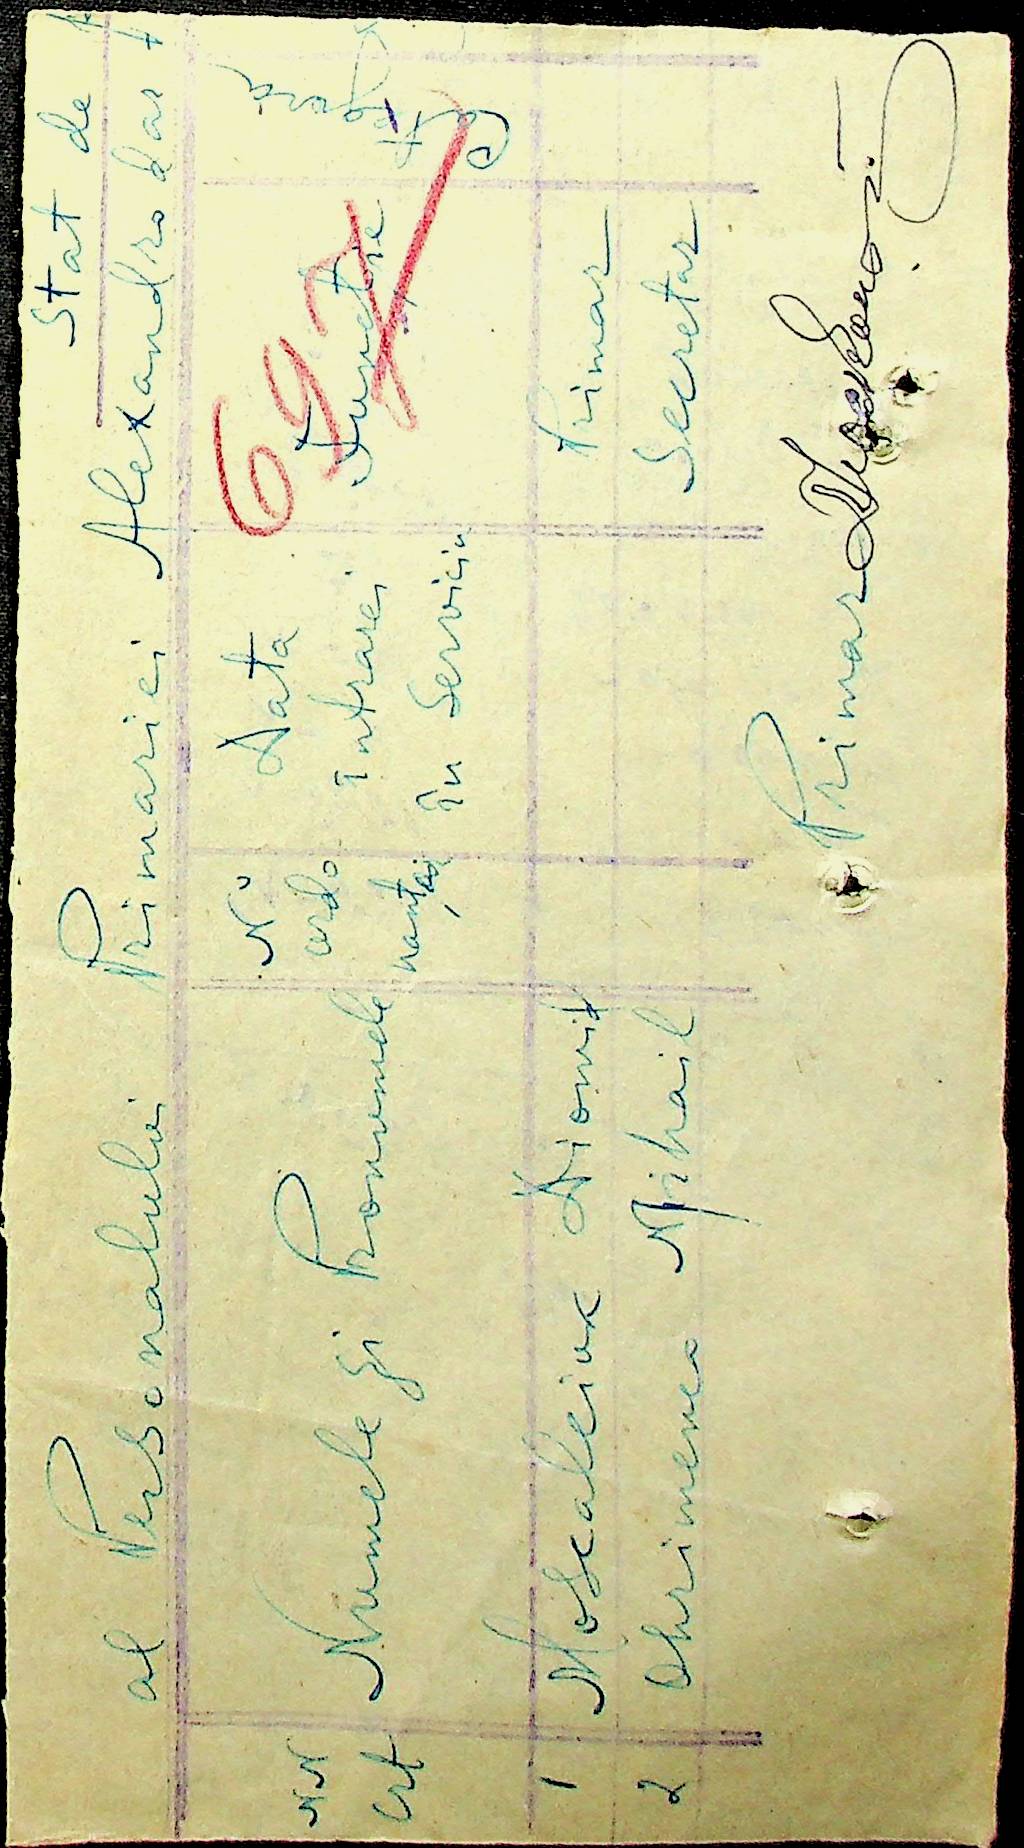 Stat de
al Personalului Primariei Alexandrodar
697
NN
crt
Numele și Pronumele
N°
ordo
nanței
Data
intrarei
în Serviciu
Functie
1 Moscaleiuk Dionit Primar
2 Ohrimenco Mihail Secretar
Primar